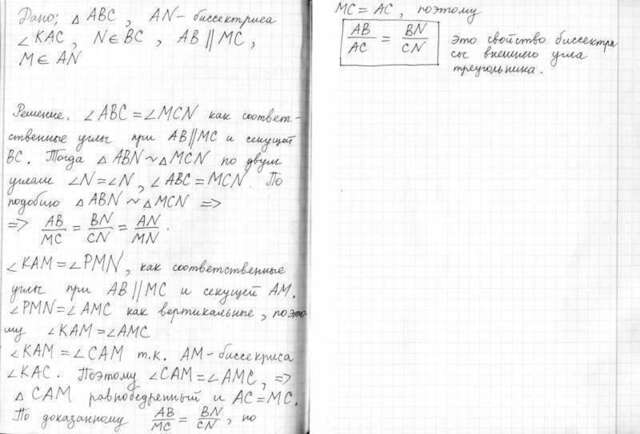 Дано: △ ABC, AN - биссектриса
∠KAC, N∈BC, AB ∥ MC,
M∈ AN
Решение. ∠ABC = ∠MCN как соответ-
ственные углы при AB∥MC и секущей
BC. Тогда △ ABN ~ △ MCN по двум
углам ∠N = ∠N, ∠ABC = MCN. По
подобию △ ABN ~ △ MCN =>
=> AB/MC = BN/CN = AN/MN.
∠KAM = ∠PMN, как соответственные
углы при AB ∥ MC и секущей AM.
∠PMN = ∠AMC как вертикальные, поэто-
му ∠KAM = ∠AMC
∠KAM = ∠CAM т.к. AM - биссекриса
∠KAC. Поэтому ∠CAM = ∠AMC, =>
△ CAM равнобедренный и AC = MC.
По доказанному AB/MC = BN/CN, но
MC = AC, поэтому
AB/AC = BN/CN Это свойство биссектри
сы внешнего угла
треугольника.